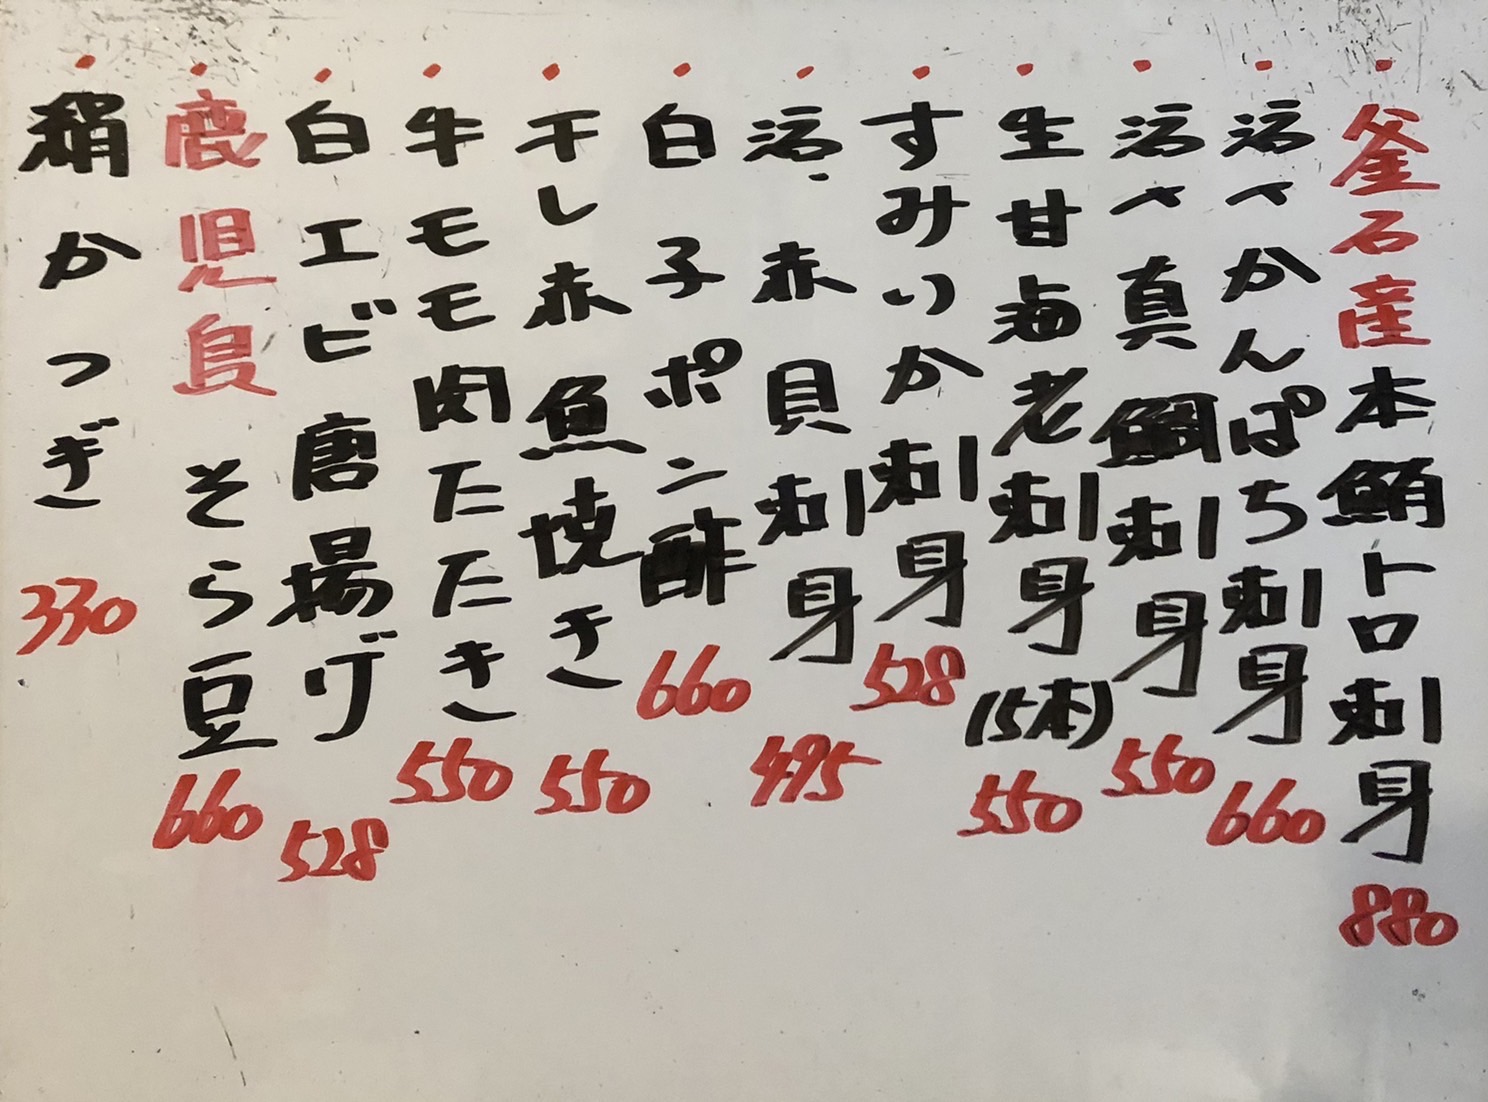 ・釜石産本鮪トロ刺身 880
・活〆かんぱち刺身 660
・活〆真鯛刺身 550
・生甘海老刺身(5本) 550
・すみいか刺身 528
・活赤貝刺身 495
・白子ポン酢 660
・干し赤魚焼き 550
・牛モモ肉たたき 550
・白エビ唐揚げ 528
・鹿児島そら豆 660
・絹かつぎ 330